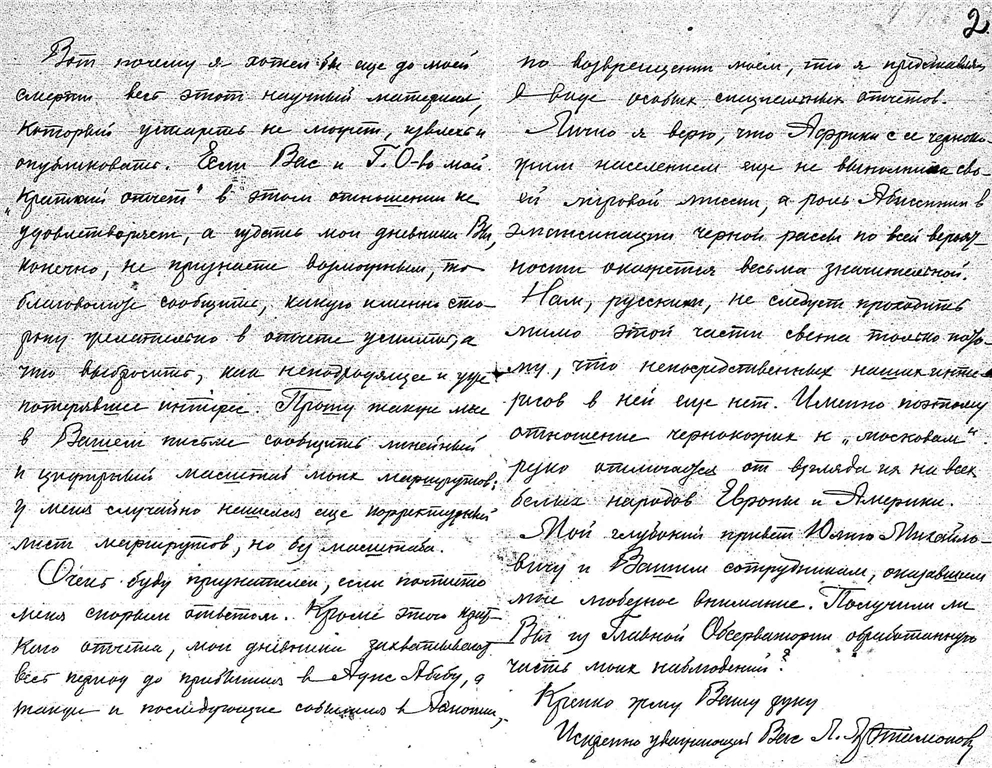 2.
Вот почему я хотел бы еще до моей
смерти весь этот научный материал,
который устареть не может, извлечь и
опубликовать. Если Вас и Г. О-во мой
„Краткий отчет" в этом отношении не
удовлетворяет, а издать мои дневники Вы,
конечно, не признаете возможным, то
благоволите сообщить, какую именно сто-
рону желательно в отчете усилить, а
что выбросить, как неподходящее и уже
потерявшее интерес. Прошу также мне
в Вашем письме сообщить линейный
и цифровый масштаб моих маршрутов;
у меня случайно нашелся еще корректурный
лист маршрутов, но без масштаба.
Очень буду признателен, если почтите
меня скорым ответом. Кроме этого крат-
кого отчета, мои дневники захватывают
весь период до прибытия в Адис Абебу, а
также и последующие события в Японии,
по возвращении моем, что я представил
в виде особых специальных отчетов.
Лично я верю, что Африка с ее черноко-
жим населением еще не выполнила сво-
ей мировой миссии, а роль Абиссинии в
эмансипации черной расы по всей вероят-
ности окажется весьма значительной.
Нам, русским, не следует проходить
мимо этой части света только пото-
му, что непосредственных наших инте-
ресов в ней еще нет. Именно поэтому
отношение чернокожих к „московам"
резко отличается от взгляда их на всех
белых народов Европы и Америки.
Мой глубокий привет Юлию Михайло-
вичу и Вашим сотрудникам, оказавшим
мне любезное внимание. Получили ли
Вы из Главной Обсерватории обработанную
часть моих наблюдений?
Крепко жму Вашу руку
Искренно уважающий Вас Л. Артамонов